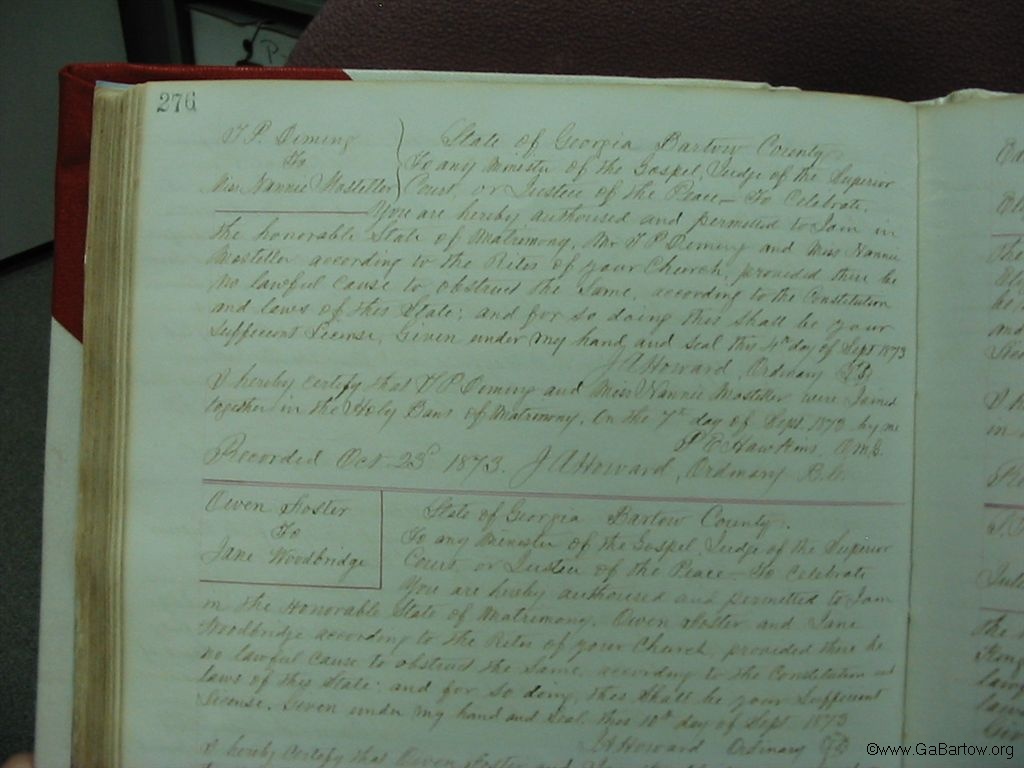 276
T. P. Deming
To
Miss Nannie Mosteller
State of Georgia Bartow County
To any Minister of the Gospel, Judge of the Superior
Court, or Justice of the Peace — To Celebrate.
You are hereby authorised and permitted to Join in
the honorable State of Matrimony, Mr T P Deming and Miss Nannie
Mosteller according to the Rites of your Church, provided there be
no lawful cause to obstruct the Same, according to the Constitution
and laws of this State; and for so doing this shall be your
sufficient License, Given under my hand and seal this 4th day of Sept 1873
J A Howard, Ordinary
I hereby certify that T P Deming and Miss Nannie Mosteller were Joined
together in the Holy Bans of Matrimony, On the 7th day of Sept. 1873 by me
Hawkins, O.M.G.
Recorded Oct 23d 1873. J A Howard, Ordinary B.C.
Owen Foster
To
Jane Woodbridge
State of Georgia Bartow County.
To any Minister of the Gospel, Judge of the Superior
Court, or Justice of the Peace — To Celebrate
You are hereby authorised and permitted to Join
in the Honorable State of Matrimony, Owen Foster and Jane
Woodbridge according to the Rites of your Church, provided there be
no lawful cause to obstruct the Same, according to the Constitution and
laws of this State; and for so doing, this shall be your Sufficient
License. Given under my hand and Seal this 10th day of Sept 1873
J A Howard Ordinary
I hereby certify that Owen Foster and
©www.GaBartow.org